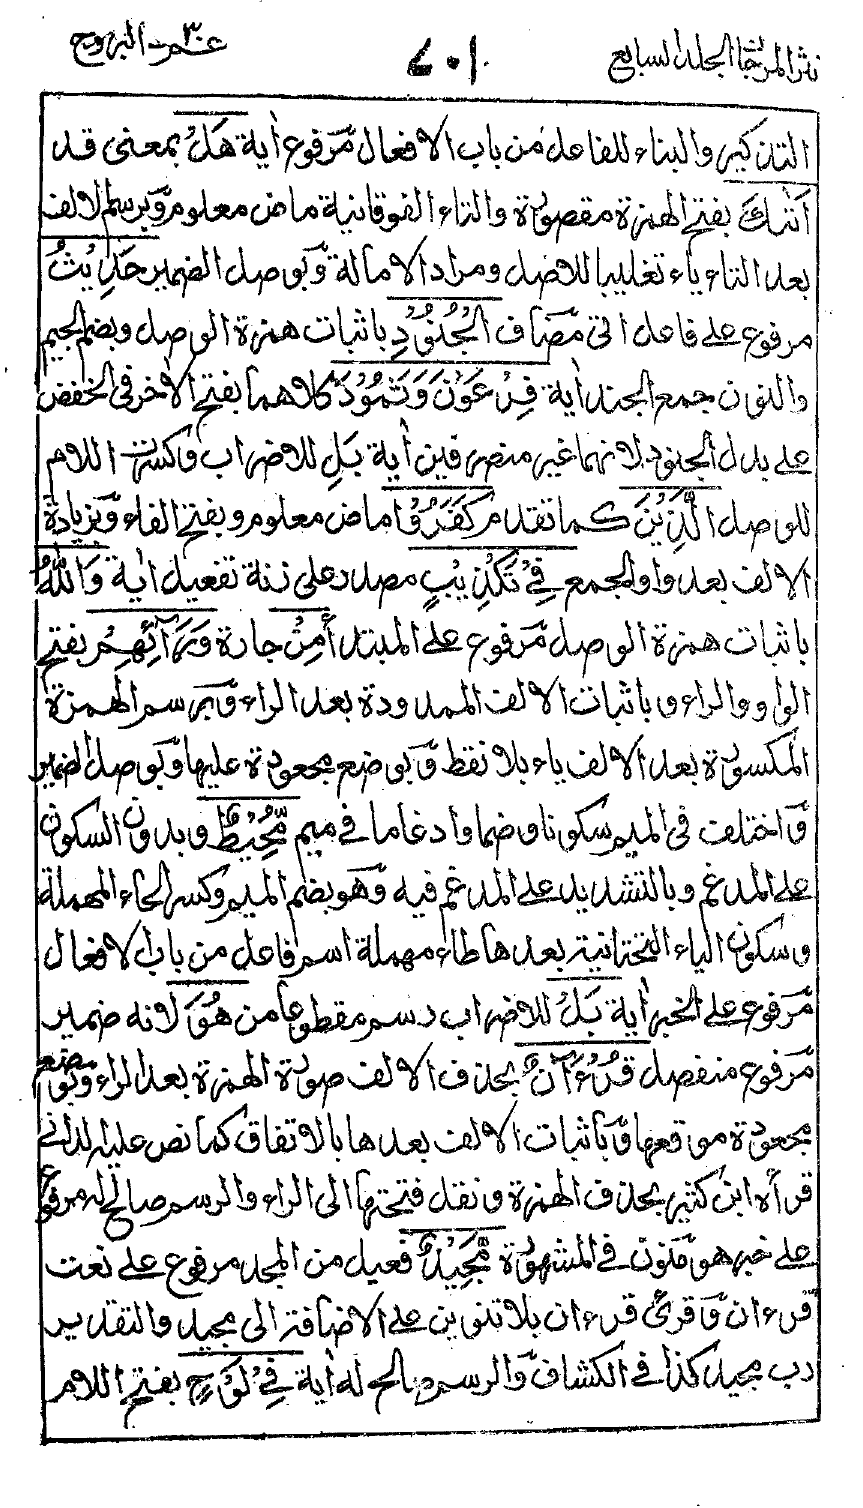 نثر المرجان الجلد السابع
٧٠١
عمّ ٣٠ البروج
التذكير والبناء للفاعل من باب الافعال مرفوع اٰية هَلْ بمعنى قد
اَتٰىكَ بفتح الهمزة مقصورة والتاء الفوقانية ماض معلوم وبرسم الالف
بعد التاء ياء تغليبا للاصل ومراد الامالة وبوصل الضمير حَدِيْثُ
مرفوع على فاعل اتى مضاف الْجُنُوْدِ باثبات همزة الوصل وبضم الجيم
والنون جمع الجند اٰية فِرْعَوْنَ وَثَمُوْدَ كلاهما بفتح الاخر فى الخفض
على بدل الجنود لانهما غير منصرفين اٰية بَلِ للاضراب وكسرت اللام
للوصل الَّذِيْنَ كما تقدم كَفَرُوْا ماض معلوم وبفتح الفاء وبزيادة
الالف بعد واو الجمع فِيْ تَكْذِيْبٍ مصدر على زنة تفعيل اٰية وَاللّٰهُ
باثبات همزة الوصل مرفوع على المبتدأ مِنْ جارة وَّرَآئِهِمْ بفتح
الواو والراء وباثبات الالف الممدودة بعد الراء وبرسم الهمزة
المكسورة بعد الالف ياء بلا نقط وبوضع مجعودة عليها وبوصل الضمير
واختلف فى الميم سكونا وضما وادغاما فى ميم مُّحِيْطٌ وبدون السكون
على المدغم وبالتشديد على المدغم فيه وهو بضم الميم وكسر الحاء المهملة
وسكون الياء التحتانية بعدها طاء مهملة اسم فاعل من باب الافعال
مرفوع على الخبر اٰية بَلْ للاضراب رسم مقطوعا من هُوَ لانه ضمير
مرفوع منفصل قُرْءَانٌ بحذف الالف صورة الهمزة بعد الراء وبوضع
مجعودة موقعها وباثبات الالف بعدها بالاتفاق كما نص عليه الدانى
قرأه ابن كثير بحذف الهمزة ونقل فتحتها الى الراء والرسم صالح له مرفوع
على خبر هو منون فى المشهورة مَّجِيْدٌ فعيل من المجد مرفوع على نعت
قرءان وقرئ قرءان بلا تنوين على الاضافة الى مجيد والتقدير
رب مجيد كذا فى الكشاف والرسم صالح له اٰية فِيْ لَوْحٍ بفتح اللام